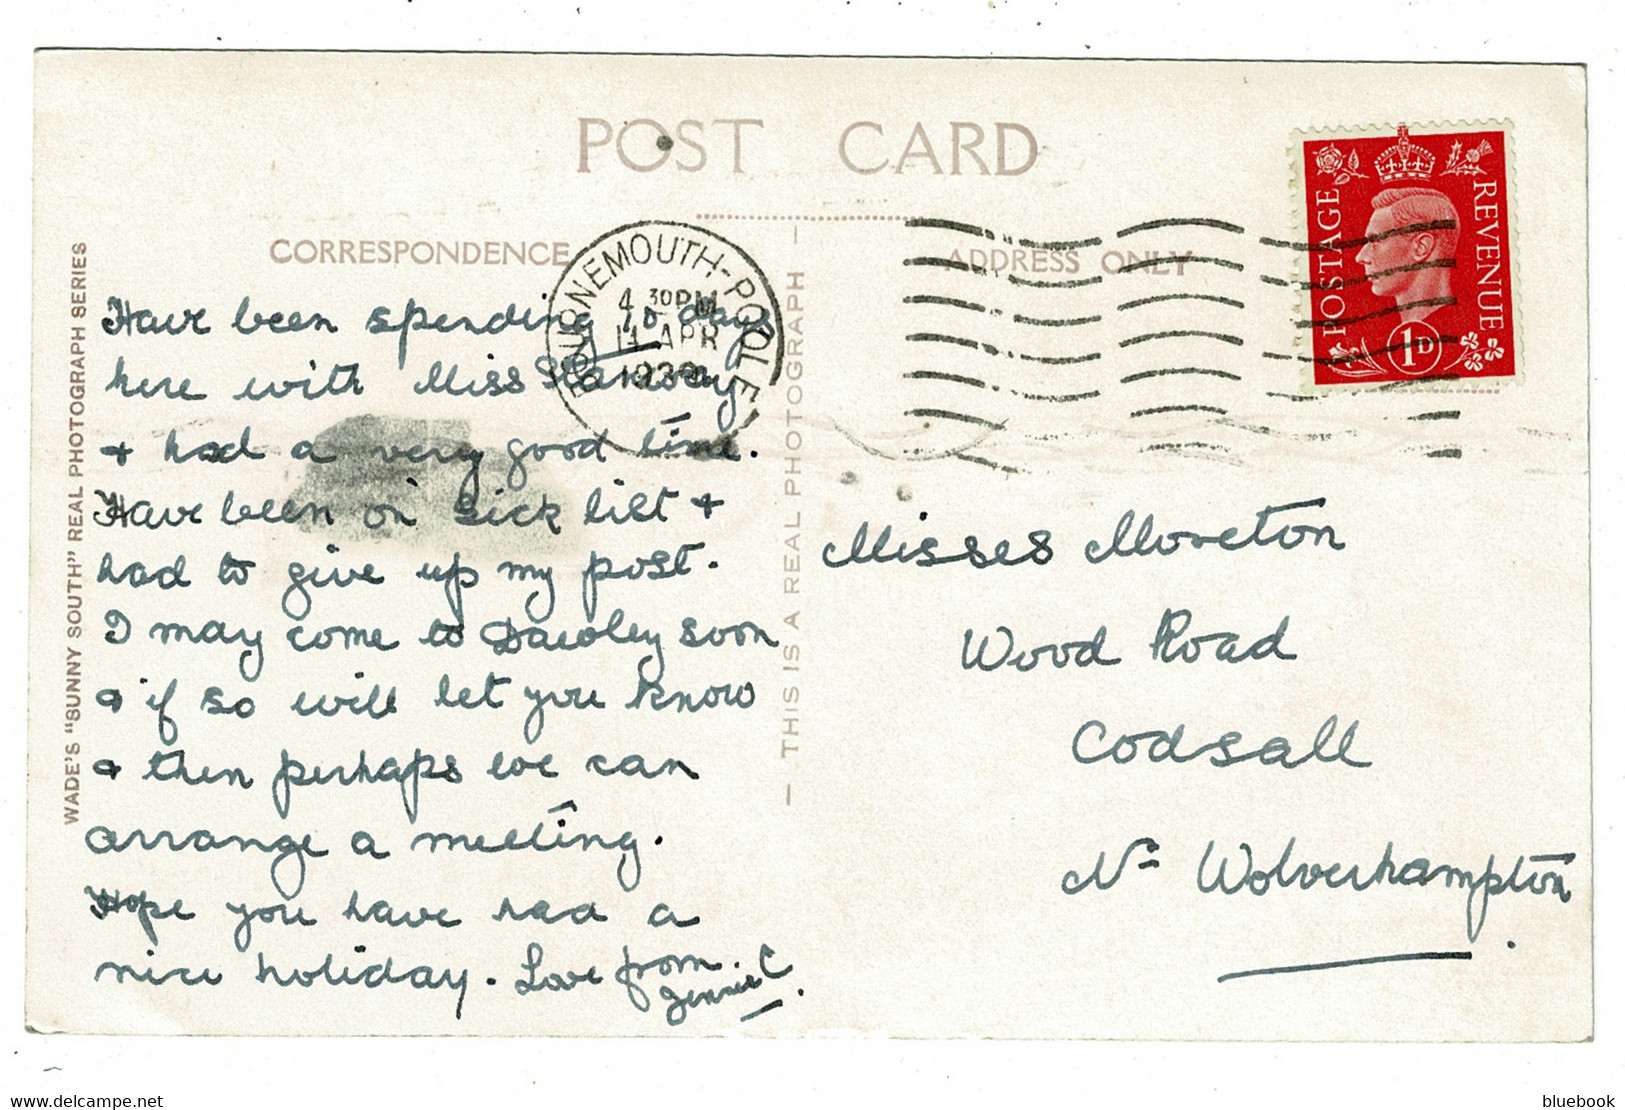 POST CARD
CORRESPONDENCE
ADDRESS ONLY
WADE'S "SUNNY SOUTH" REAL PHOTOGRAPH SERIES
— THIS IS A REAL PHOTOGRAPH —
BOURNEMOUTH-POOLE
4 30 PM
14 APR
1939
POSTAGE REVENUE
1D
Have been spending 10 days
here with Miss
& had a very good time.
Have been on sick list &
had to give up my post.
I may come to Dawley soon
& if so will let you know
& then perhaps we can
arrange a meeting.
Hope you have had a
nice holiday. Love from
Jennie C.
Misses Moreton
Wood Road
Codsall
Nr Wolverhampton.
delcampe.net
bluebook